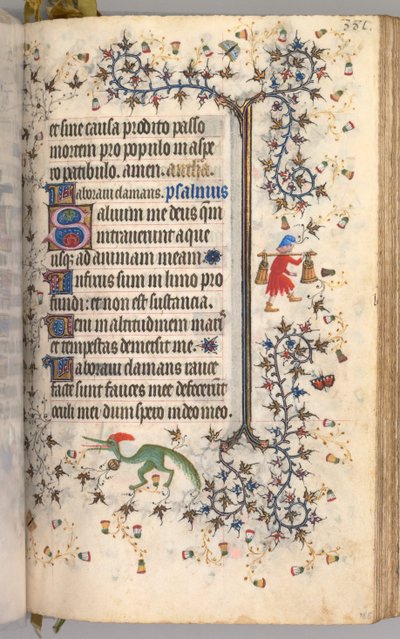 et sine causa prodito passo
mortem pro populo in aspe
ro patibulo. amen. antha.
Laboraui clamans. psalmus
Saluum me deus qm
intrauerunt aque
usq; ad animam meam
Infixus sum in limo pro
fundi: et non est sustancia.
Ueni in altitudinem mari
et tempestas demersit me.
Laboraui clamans rauce
facte sunt fauces mee defecerūt
oculi mei dum spero in deo meo.